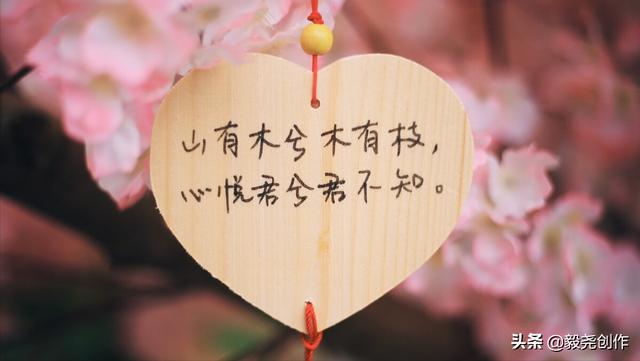 山有木兮木有枝，
心悦君兮君不知。
头条 @毅尧创作